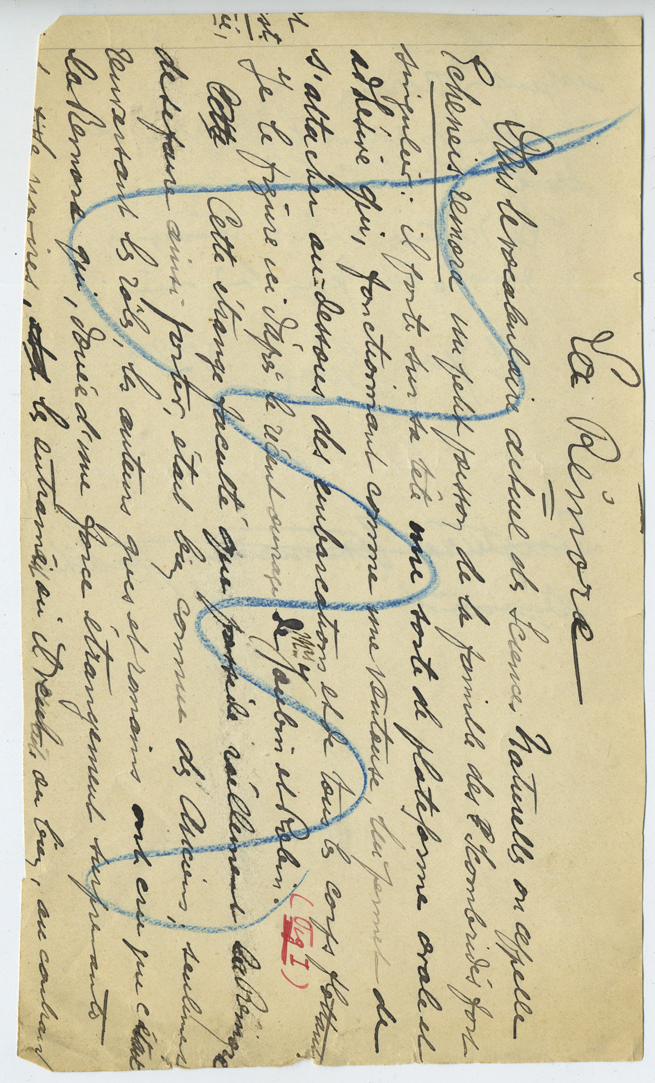 La Rémora
Dans le vocabulaire actuel des Sciences Naturelles on appelle
Echeneis remora un petit poisson de la famille des Scombridés fort
singulier: il porte sur sa tête une sorte de plateforme ovale et
adhésive qui, fonctionnant comme une ventouse, lui permet de
s'attacher au-dessous des embarcations et de tous les corps flottants
Je le figure ici d'après le récent ouvrage de MM Joubin et Robin. (Fig I)
Cette étrange faculté que possède réellement la Rémora
de se faire ainsi porter, était bien connue des Anciens; seulement
renversant les rôles, les auteurs grecs et romains ont cru que c'était
la Remora qui, douée d'une force étrangement surprenante
les navires, les entraînait où il voulait, ou bien, au contraire